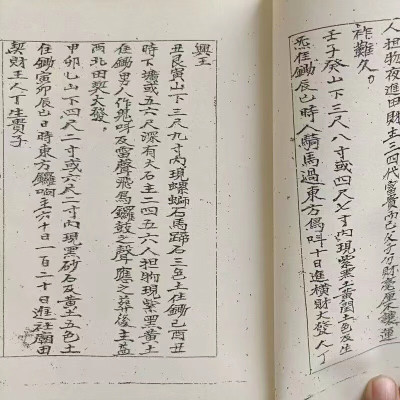 人担物夜進田財主三四代富貴而已
祚難久。
壬子癸山下三尺八寸或四尺七寸內現紫黑土黃潤土色及生
炁住鋤辰巳時人騎馬過東方鳥叫十日進橫財大發人丁
興王
丑艮寅山下三尺九寸內現螺螄石馬蹄石三色土住鋤己酉丑
時下壙或五六尺深有大石主二四五六人担物現紫黑黃土
住鋤男人作鬼呼及雷聲飛馬鑼鼓之聲應之葬後主益
西北田契大發。
甲卯乙山下四尺二寸或六尺二寸內現黑砂石及黃土五色土
住鋤寅卯辰巳日時東方鑼啊主六十日一百二十日進社廟田
契財王人丁生貴子